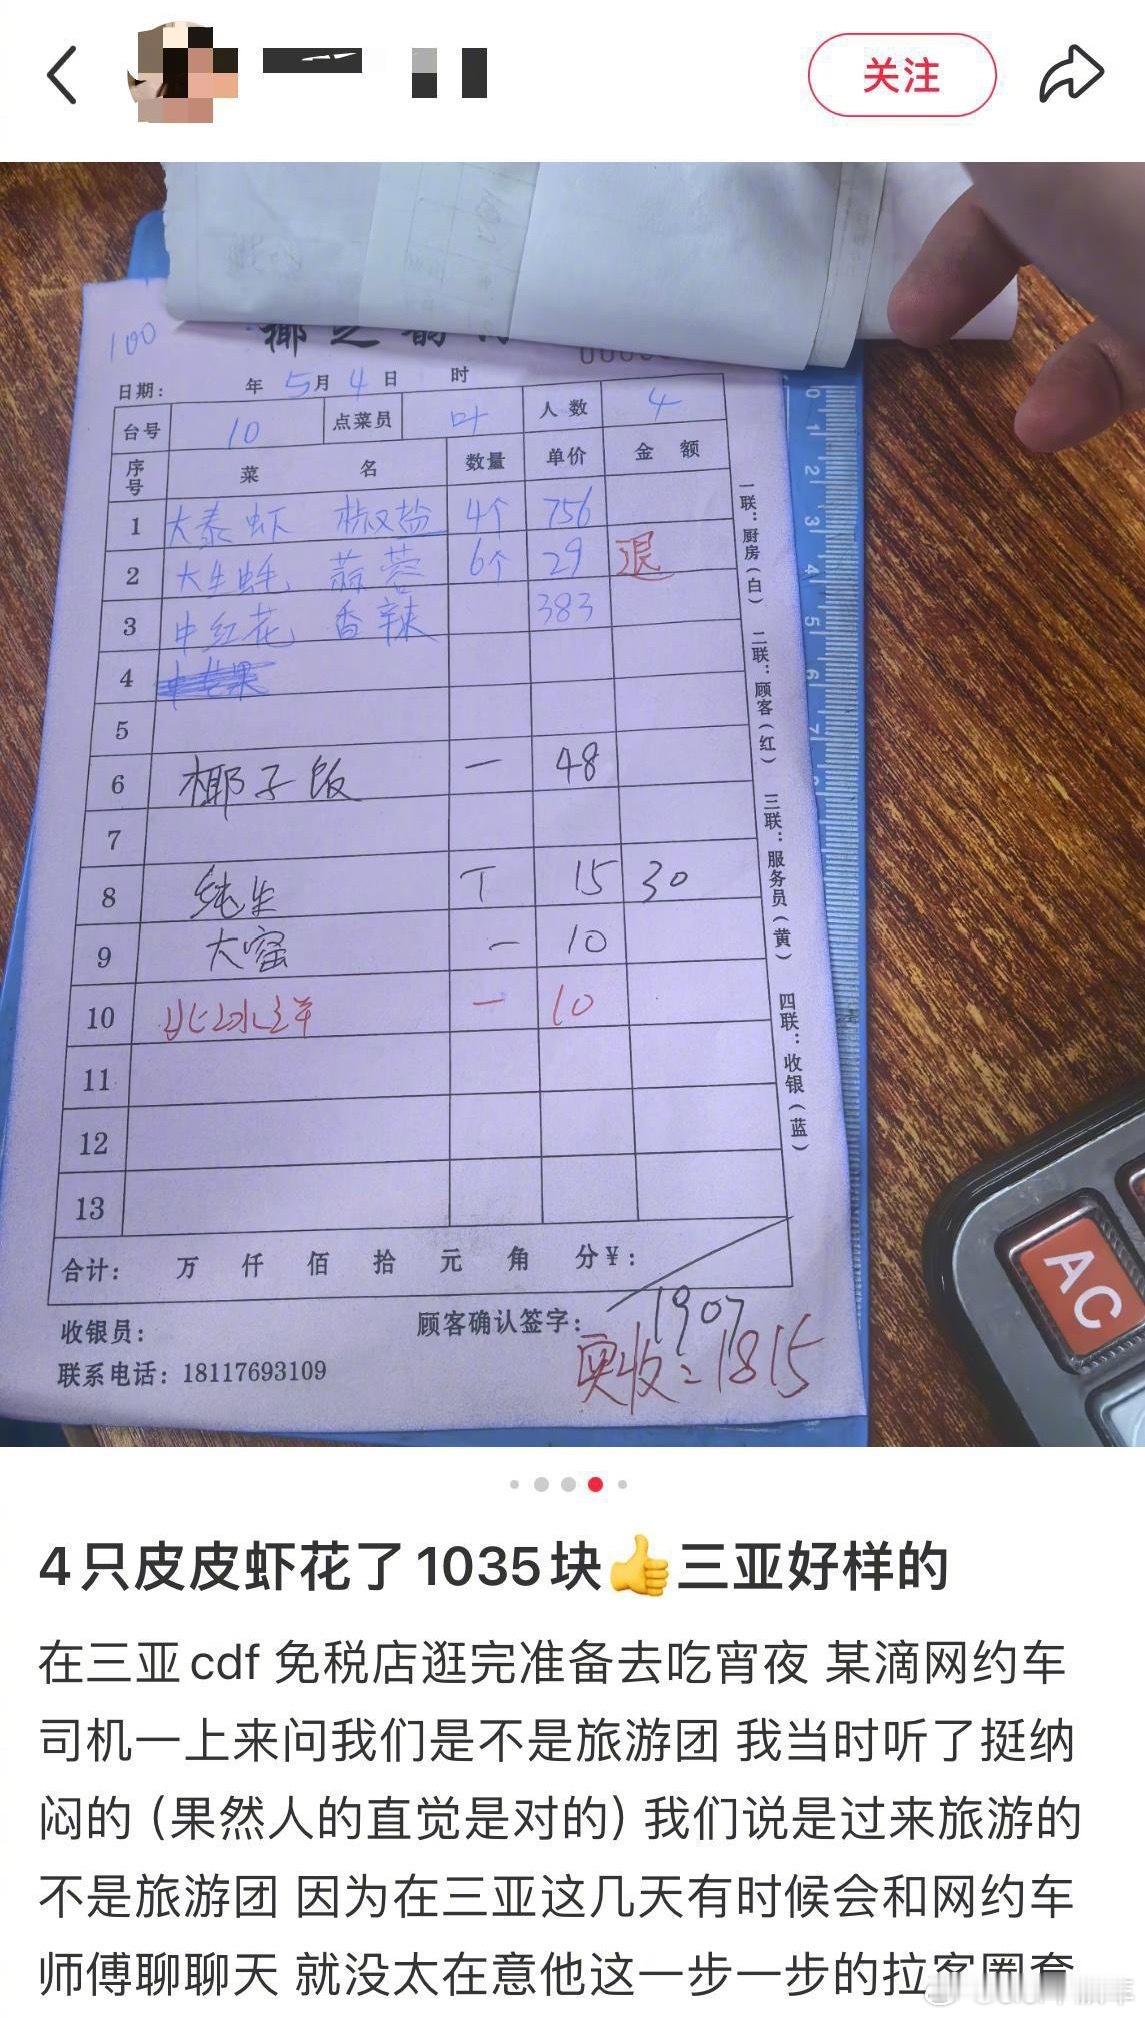 关注
100
椰之韵
日期： 年 5月 4 日 时
台号 10 点菜员 叶 人数 4
序号 菜 名 数量 单价 金 额
1 大泰虾 椒盐 4个 756
2 大生蚝 蒜蓉 6个 29 退
3 中红花 香辣 383
4
5
6 椰子饭 一 48
7
8 纯生 T 15 30
9 大窑 一 10
10 北冰洋 一 10
11
12
13
合计： 万 仟 佰 拾 元 角 分￥：
1907
收银员： 顾客确认签字：
实收：1815
联系电话：18117693109
一联：厨房（白）
二联：顾客（红）
三联：服务员（黄）
四联：收银（蓝）
0
1
2
3
4
5
6
7
AC
4只皮皮虾花了1035块👍三亚好样的
在三亚cdf 免税店逛完准备去吃宵夜 某滴网约车
司机一上来问我们是不是旅游团 我当时听了挺纳
闷的（果然人的直觉是对的）我们说是过来旅游的
不是旅游团 因为在三亚这几天有时候会和网约车
师傅聊聊天 就没太在意他这一步一步的拉客圈套